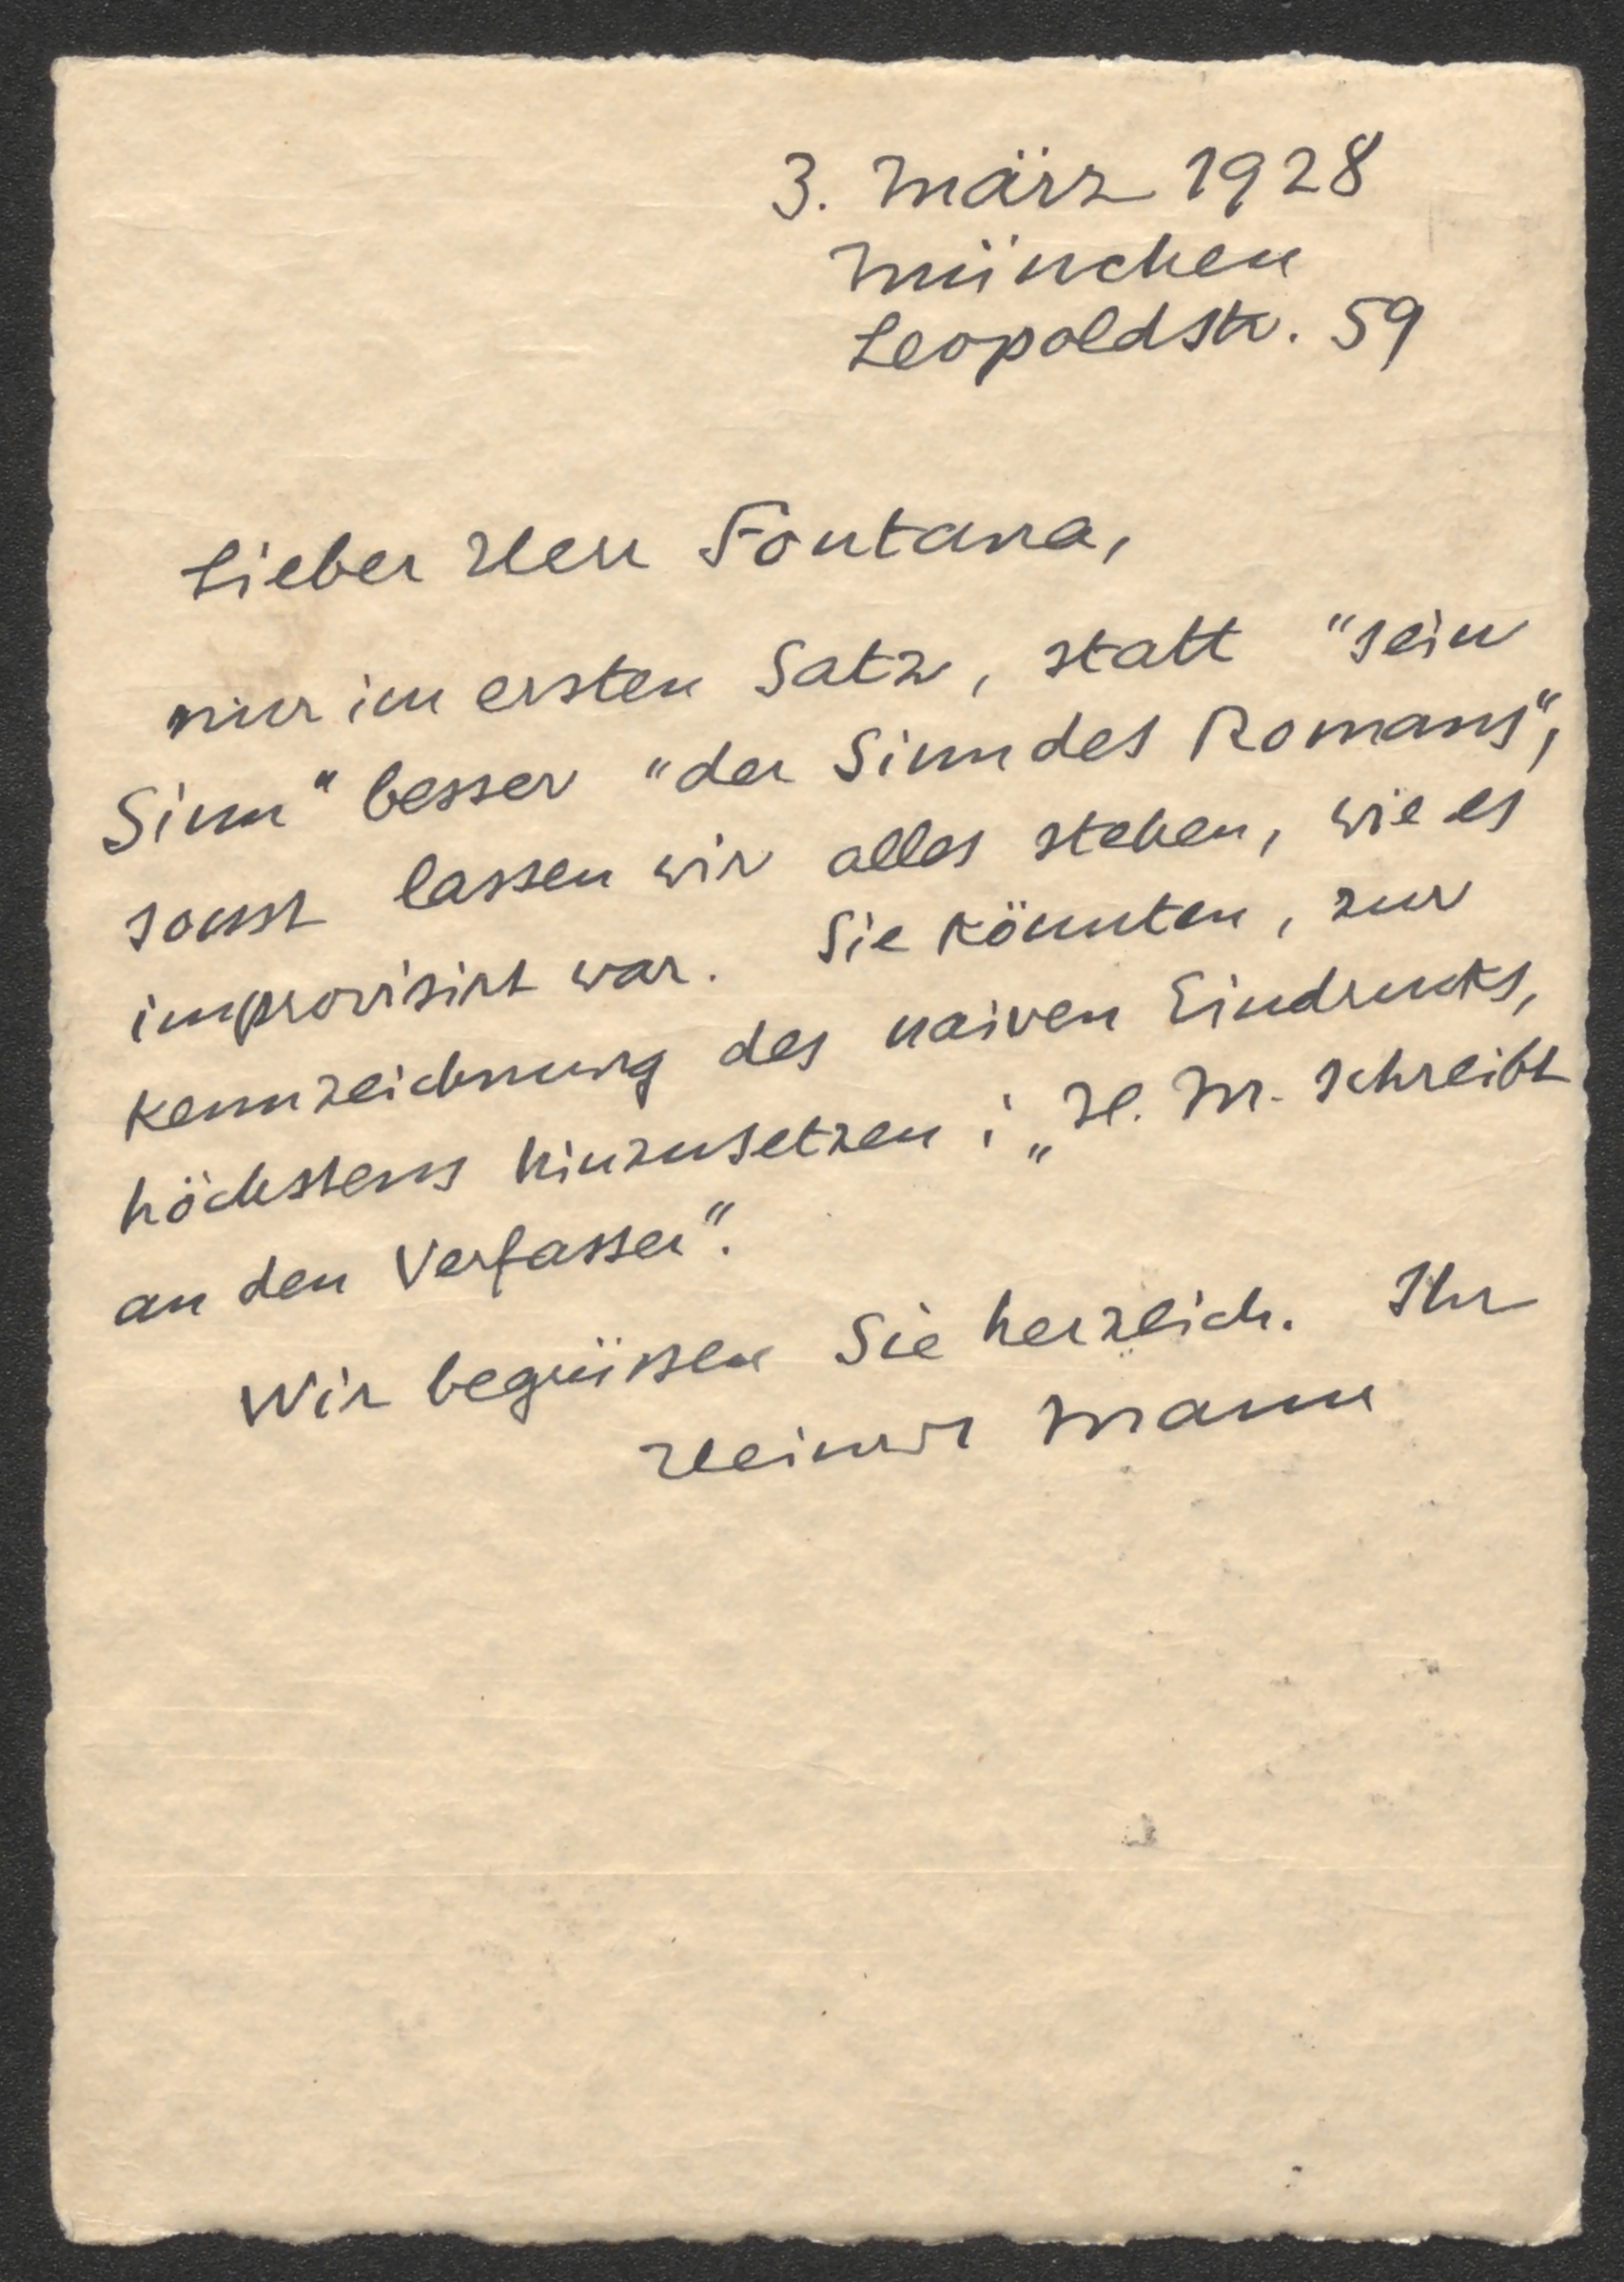 3. März 1928
München
Leopoldstr. 59
Lieber Herr Fontana,
nur im ersten Satz, statt "sein
Sinn" besser "der Sinn des Romans",
sonst lassen wir alles stehen, wie es
improvisirt war. Sie könnten, zur
Kennzeichnung des naiven Eindrucks,
höchstens hinzusetzen: „H. M. schreibt
an den Verfasser".
Wir begrüssen Sie herzlich. Ihr
Heinrich Mann